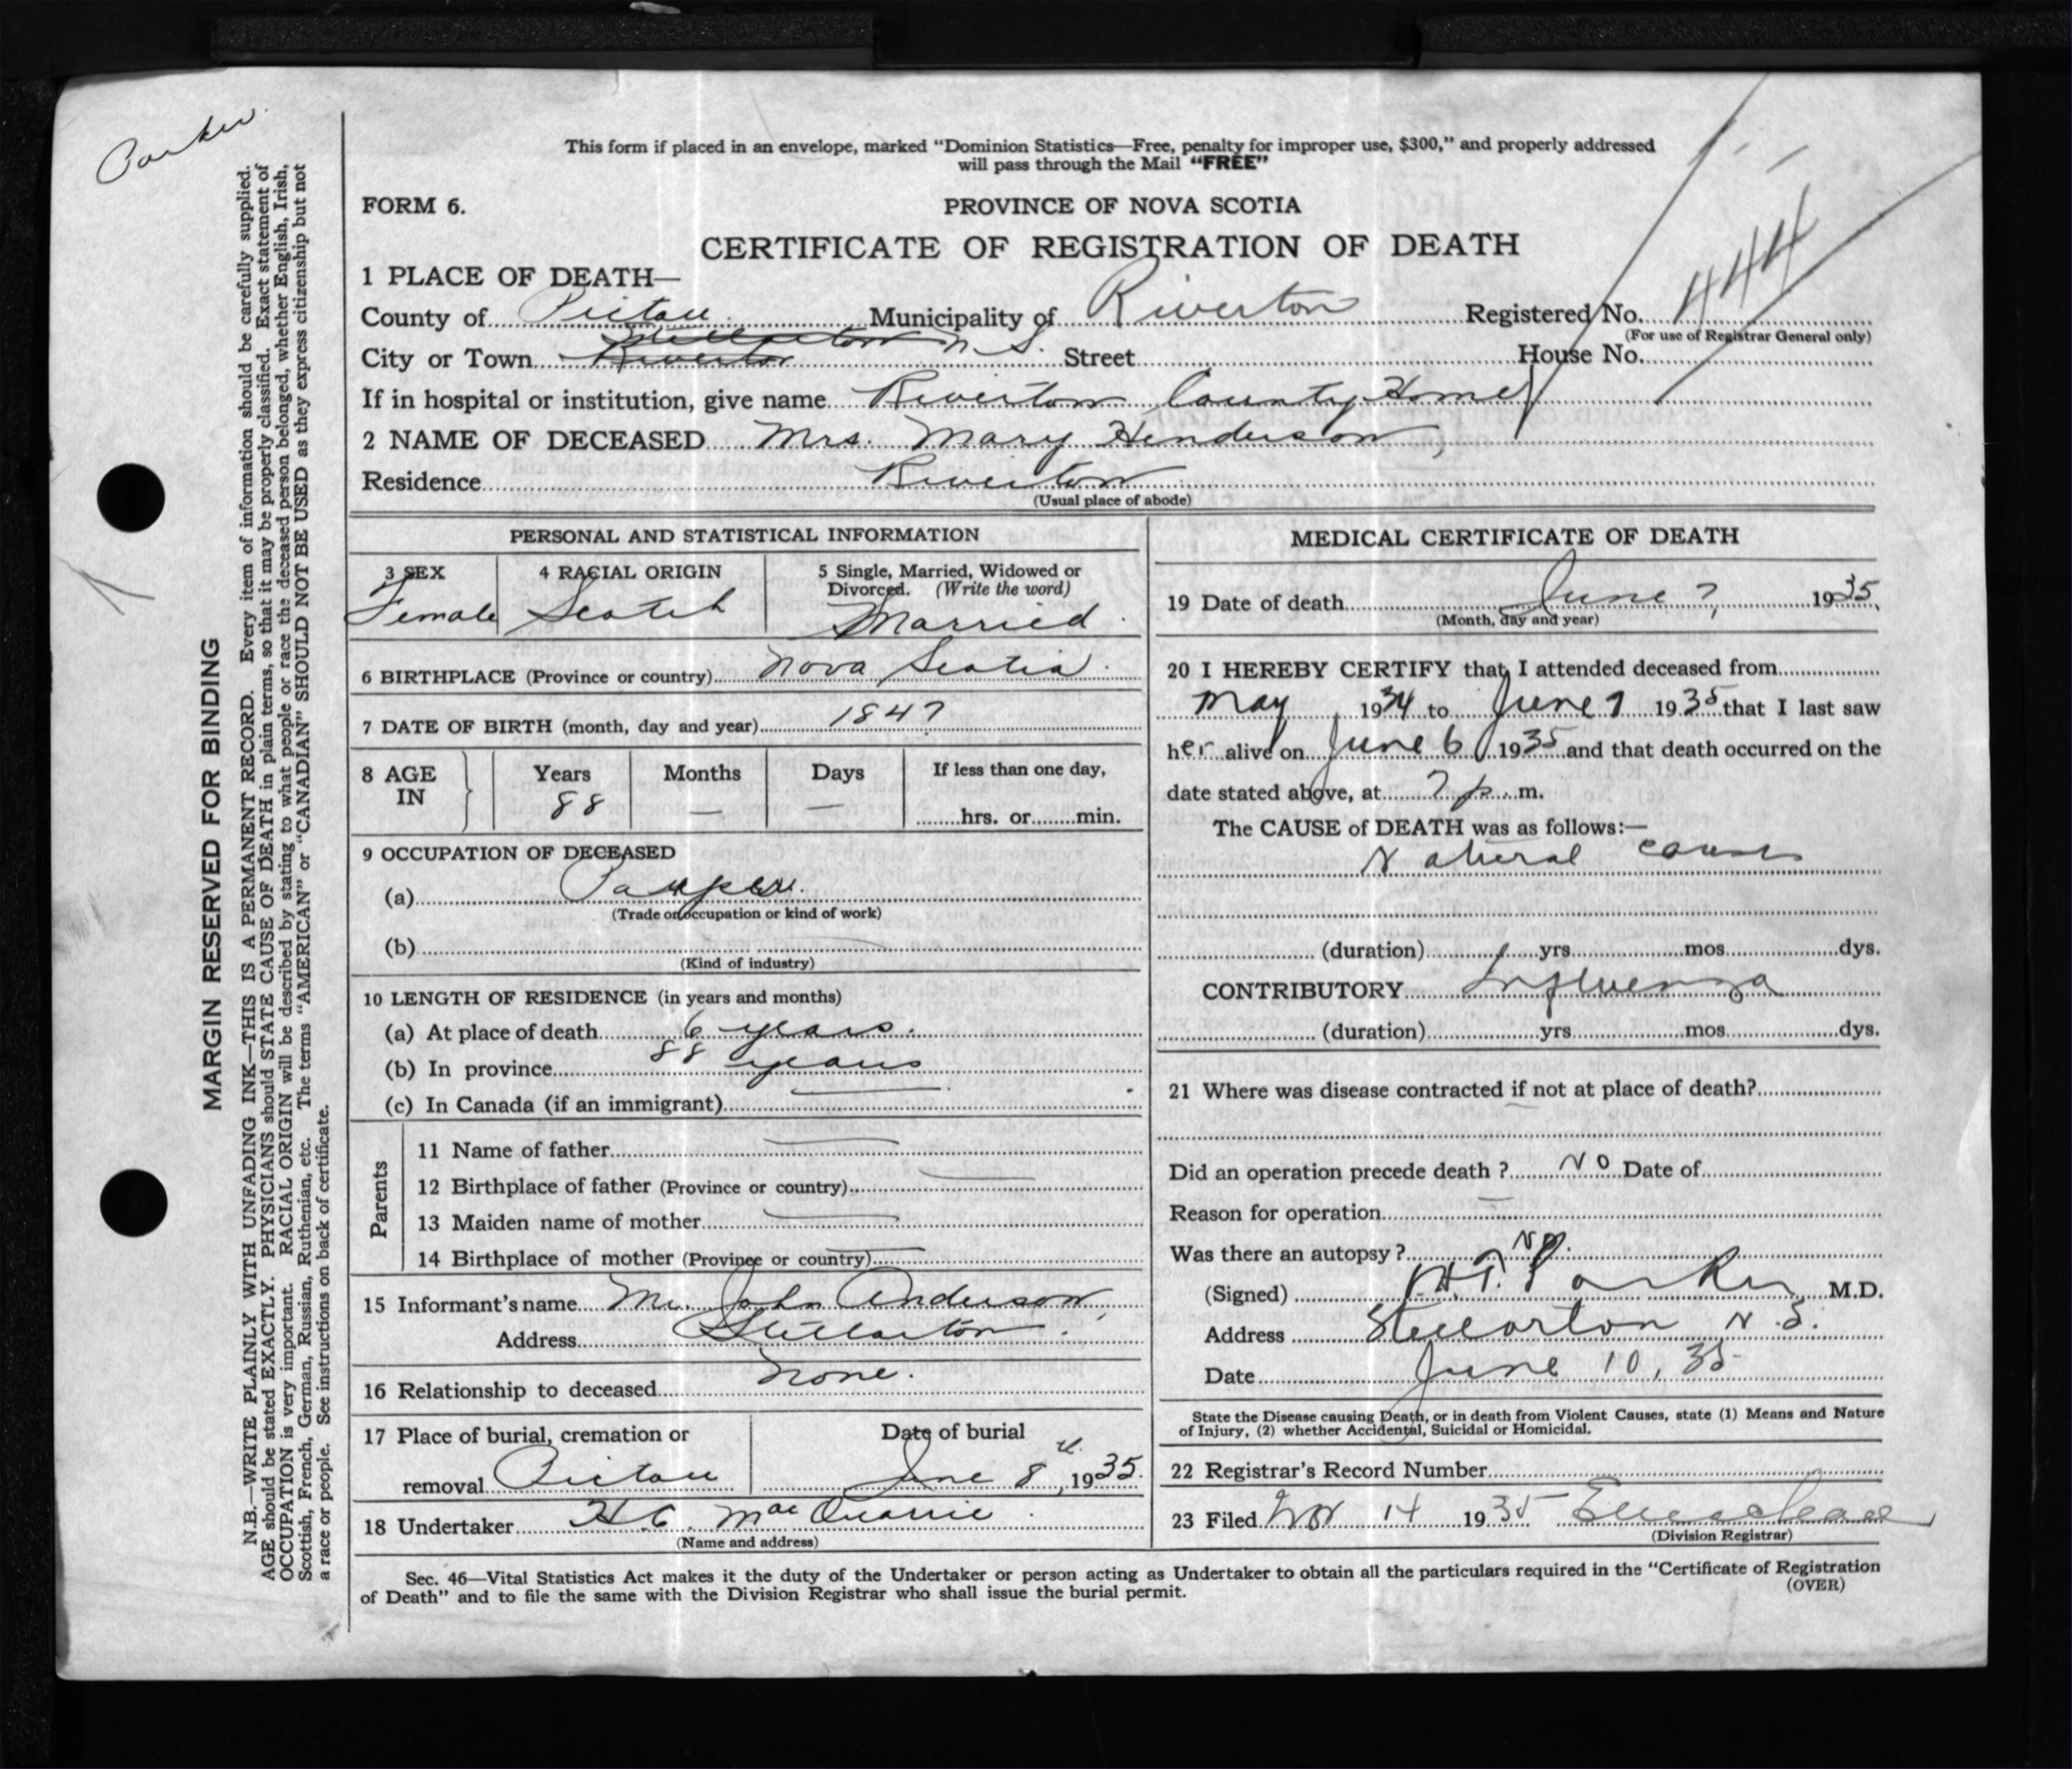 Parker
MARGIN RESERVED FOR BINDING
N.B.—WRITE PLAINLY WITH UNFADING INK—THIS IS A PERMANENT RECORD. Every item of information should be carefully supplied.
AGE should be stated EXACTLY. PHYSICIANS should STATE CAUSE OF DEATH in plain terms, so that it may be properly classified. Exact statement of
OCCUPATION is very important. RACIAL ORIGIN will be described by stating to what people or race the deceased person belonged, whether English, Irish,
Scottish, French, German, Russian, Ruthenian, etc. The terms "AMERICAN" or "CANADIAN" SHOULD NOT BE USED as they express citizenship but not
a race or people. See instructions on back of certificate.
This form if placed in an envelope, marked "Dominion Statistics—Free, penalty for improper use, $300," and properly addressed
will pass through the Mail "FREE"
FORM 6. PROVINCE OF NOVA SCOTIA
CERTIFICATE OF REGISTRATION OF DEATH
444
1 PLACE OF DEATH—
County of Pictou Municipality of Riverton Registered No.
(For use of Registrar General only)
City or Town Riverton N.S. Street House No.
If in hospital or institution, give name Riverton County Home
2 NAME OF DECEASED Mrs. Mary Henderson,
Residence Riverton
(Usual place of abode)
PERSONAL AND STATISTICAL INFORMATION
3 SEX 4 RACIAL ORIGIN 5 Single, Married, Widowed or
Divorced. (Write the word)
Female Scotch Married.
6 BIRTHPLACE (Province or country) Nova Scotia.
7 DATE OF BIRTH (month, day and year) 1847
8 AGE IN Years Months Days If less than one day,
88 — — hrs. or min.
9 OCCUPATION OF DECEASED
(a) Pauper.
(Trade or occupation or kind of work)
(b)
(Kind of industry)
10 LENGTH OF RESIDENCE (in years and months)
(a) At place of death 6 years.
(b) In province 88 years
(c) In Canada (if an immigrant)
Parents
11 Name of father
12 Birthplace of father (Province or country)
13 Maiden name of mother
14 Birthplace of mother (Province or country)
15 Informant's name Mr. John Anderson,
Address Stellarton.
16 Relationship to deceased None.
17 Place of burial, cremation or Date of burial
removal Pictou June 8th, 1935.
18 Undertaker H.C. MacQuarrie.
(Name and address)
MEDICAL CERTIFICATE OF DEATH
19 Date of death June 7, 1935,
(Month, day and year)
20 I HEREBY CERTIFY that I attended deceased from
May, 1934 to June 7 1935 that I last saw
her alive on June 6 1935 and that death occurred on the
date stated above, at 7 p. m.
The CAUSE of DEATH was as follows:—
Natural causes
(duration) yrs mos dys.
CONTRIBUTORY Influenza
(duration) yrs mos dys.
21 Where was disease contracted if not at place of death?
Did an operation precede death ? No Date of
Reason for operation —
Was there an autopsy ? No.
(Signed) H.T. Parker M.D.
Address Stellarton N.S.
Date June 10, 35
State the Disease causing Death, or in death from Violent Causes, state (1) Means and Nature
of Injury, (2) whether Accidental, Suicidal or Homicidal.
22 Registrar's Record Number
23 Filed 14 1935
(Division Registrar)
Sec. 46—Vital Statistics Act makes it the duty of the Undertaker or person acting as Undertaker to obtain all the particulars required in the "Certificate of Registration
of Death" and to file the same with the Division Registrar who shall issue the burial permit.
(OVER)